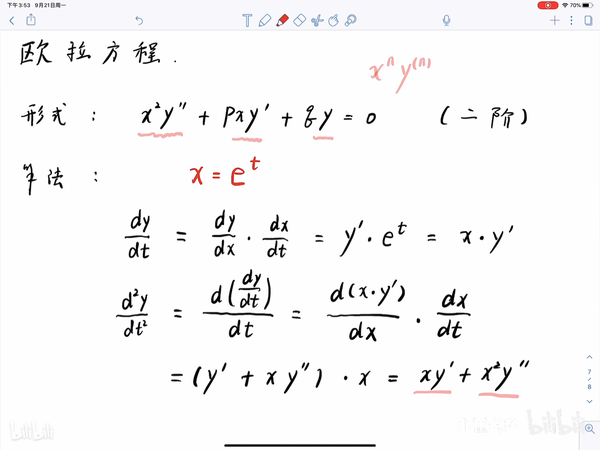 下午3:53 9月21日周一
70%
欧拉方程.
xⁿy⁽ⁿ⁾
形式: x²y'' + pxy' + qy = 0 (二阶)
算法: x = eᵗ
dy/dt = dy/dx · dx/dt = y' · eᵗ = x · y'
d²y/dt² = d(dy/dt)/dt = d(x·y')/dx · dx/dt
= (y' + xy'') · x = xy' + x²y''
7/8
bilibili
bilibili